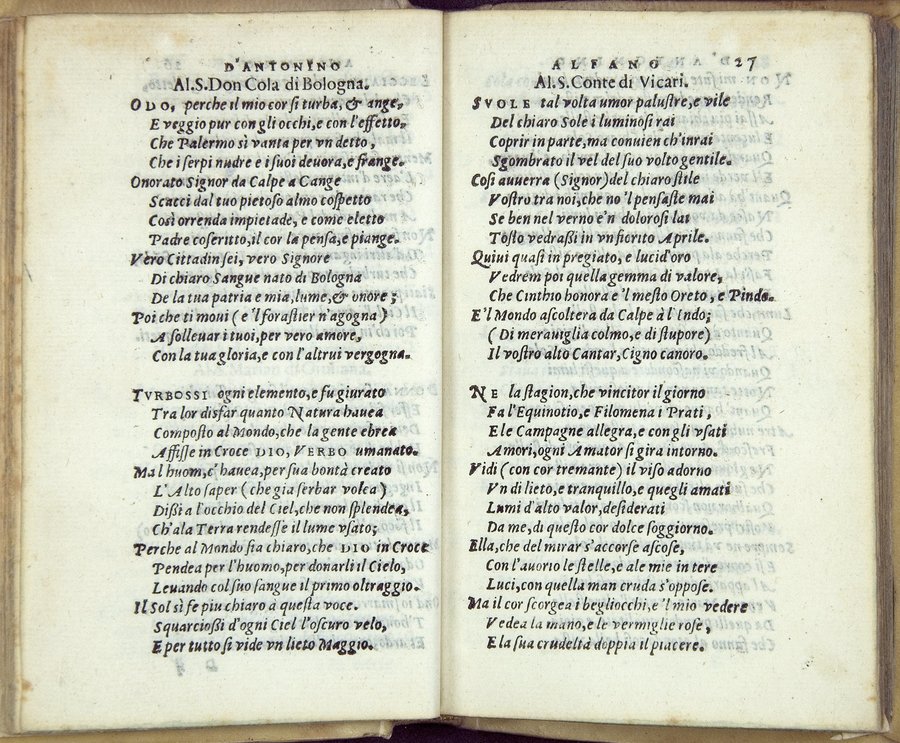 D'ANTONINO
Al.S.Don Cola di Bologna.
ODO, perche il mio cor si turba, & ange,
E veggio pur con gli occhi, e con l'effetto,
Che Palermo si vanta per vn detto,
Che i serpi nudre e i suoi deuora, e frange.
Onorato Signor da Calpe a Cange
Scacci dal tuo pietoso almo cospetto
Così orrenda impietade, e come eletto
Padre coscritto, il cor la pensa, e piange.
Vero Cittadin sei, vero Signore
Di chiaro Sangue nato di Bologna
De la tua patria e mia, lume, & onore;
Poi che ti moui (e 'l forastier n'agogna)
A solleuar i tuoi, per vero amore,
Con la tua gloria, e con l'altrui vergogna.
TVRBOSSI ogni elemento, e fu giurato
Tra lor disfar quanto Natura hauea
Composto al Mondo, che la gente ebrea
Affisse in Croce DIO, VERBO umanato.
Ma l'huom, c'hauea, per sua bontà creato
L'Alto saper (che gia serbar volea)
Dißi a l'occhio del Ciel, che non splendea,
Ch'a la Terra rendesse il lume vsato;
Perche al Mondo sia chiaro, che DIO in Croce
Pendea per l'huomo, per donarli il Cielo,
Leuando col suo sangue il primo oltraggio.
Il Sol sì fe piu chiaro a questa voce.
Squarcioßi d'ogni Ciel l'oscuro velo,
E per tutto si vide vn lieto Maggio.
ALFANO 27
Al.S.Conte di Vicari.
SVOLE tal volta umor palustre, e vile
Del chiaro Sole i luminosi rai
Coprir in parte, ma conuien ch'inrai
Sgombrato il vel del suo volto gentile.
Così auuerra (Signor) del chiaro stile
Vostro tra noi, che no 'l pensaste mai
Se ben nel verno e'n dolorosi lai
Tosto vedraßi in vn fiorito Aprile.
Quiui quasi in pregiato, e lucid'oro
Vedrem poi quella gemma di valore,
Che Cinthio honora e 'l mesto Oreto, e Pindo.
E'l Mondo ascoltera da Calpe à l'Indo;
(Di merauiglia colmo, e di stupore)
Il vostro alto Cantar, Cigno canoro.
NE la stagion, che vincitor il giorno
Fa l'Equinotio, e Filomena i Prati,
E le Campagne allegra, e con gli vsati
Amori, ogni Amator si gira intorno.
Vidi (con cor tremante) il viso adorno
Vn di lieto, e tranquillo, e quegli amati
Lumi d'alto valor, desiderati
Da me, di questo cor dolce soggiorno.
Ella, che del mirar s'accorse ascose,
Con l'auorio le stelle, e a le mie intere
Luci, con quella man cruda s'oppose.
Ma il cor scorgea i begliocchi, e 'l mio vedere
Vedea la mano, e le vermiglie rose,
E la sua crudeltà doppia il piacere.